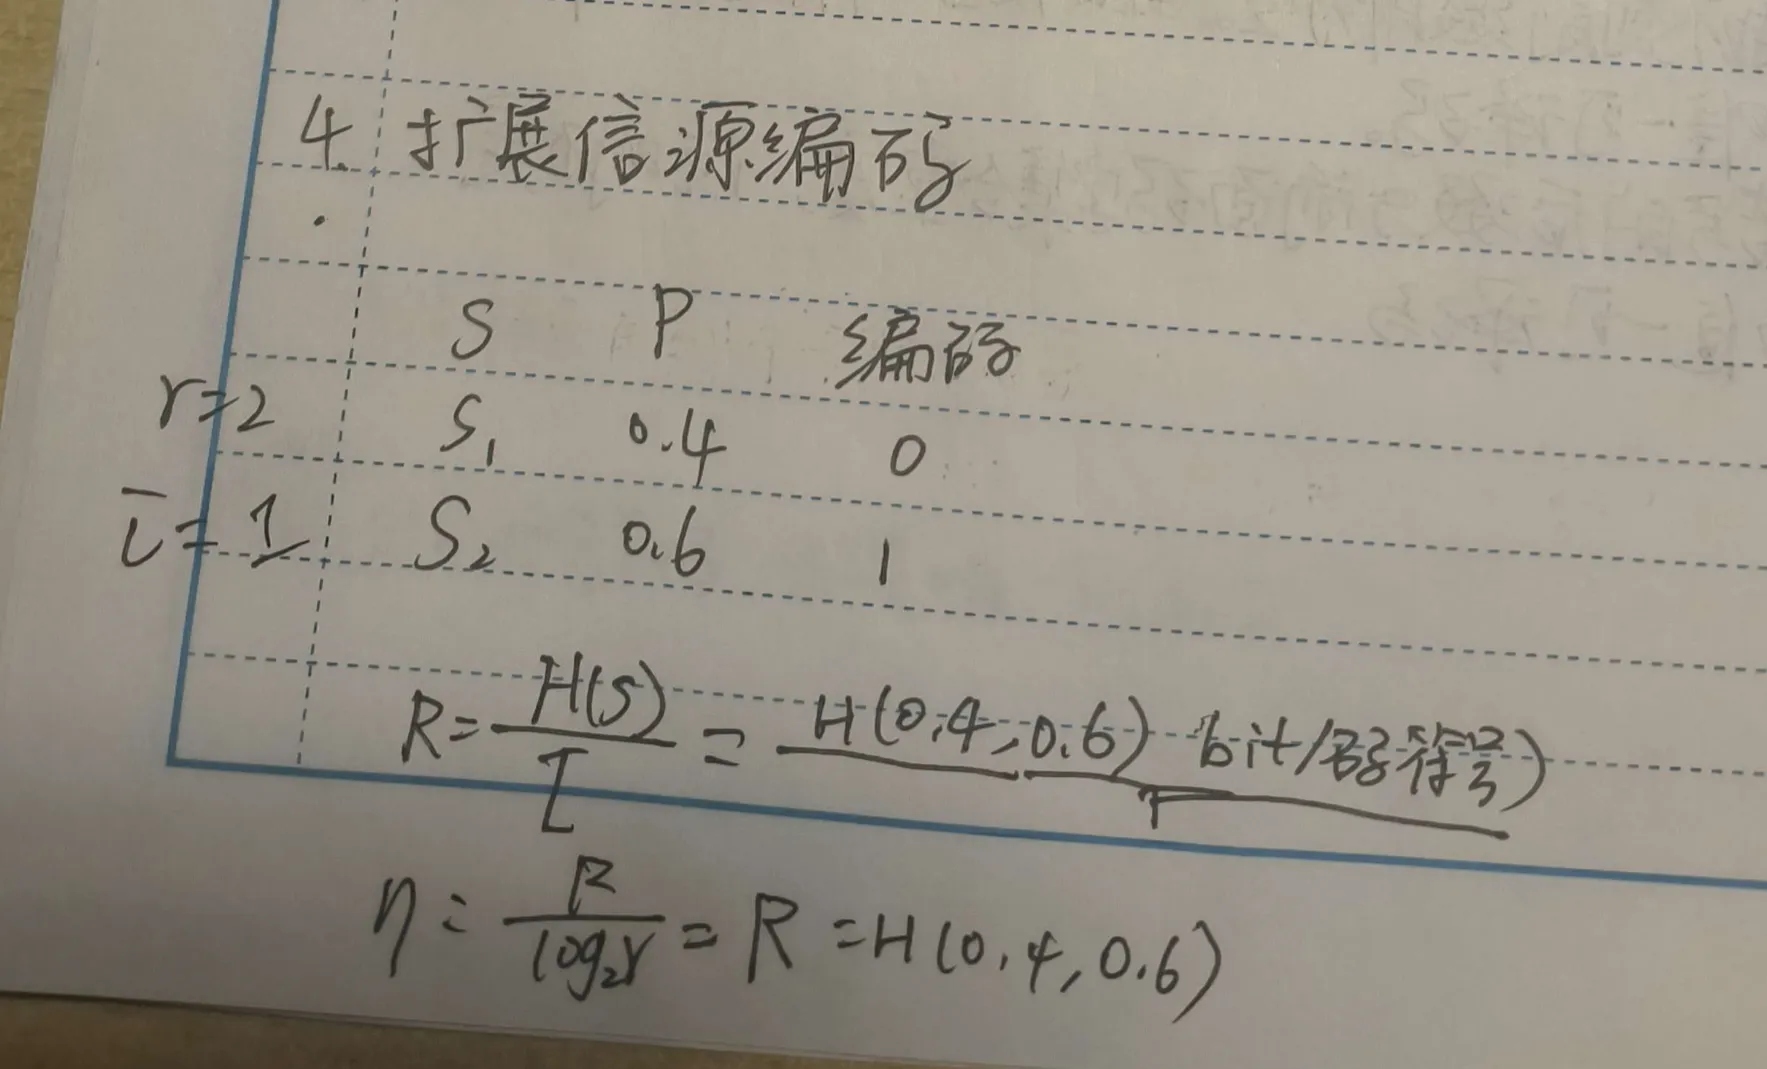 4. 扩展信源编码
S P 编码
r=2 S₁ 0.4 0
l̄=1 S₂ 0.6 1
R = H(S)/l̄ = H(0.4, 0.6) bit/码符号) / 1
η = R/log₂r = R = H(0.4, 0.6)